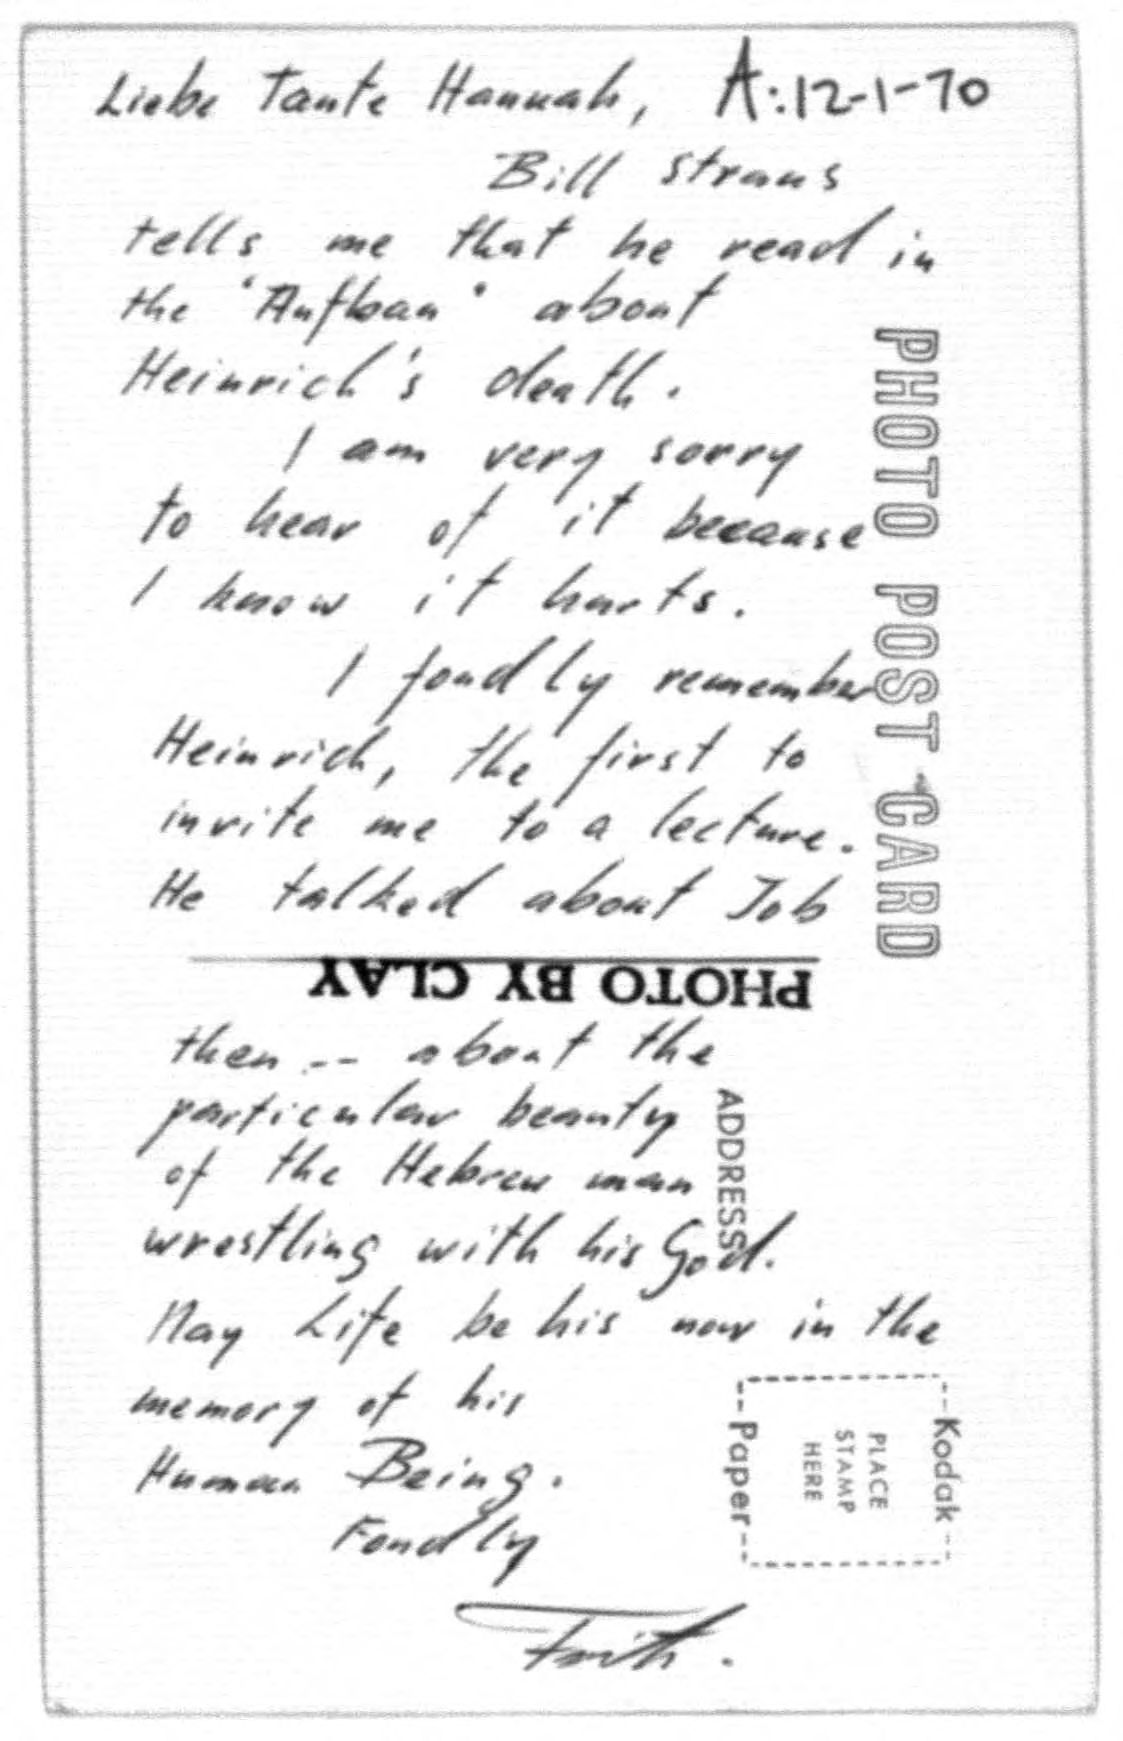 Liebe Tante Hannah, A:12-1-70
Bill Straus
tells me that he read in
the "Aufbau" about
Heinrich's death.
I am very sorry
to hear of it because
I know it hurts.
I fondly remember
Heinrich, the first to
invite me to a lecture.
He talked about Job
PHOTO BY CLAY
then -- about the
particular beauty
of the Hebrew man
wrestling with his God.
May Life be his now in the
memory of his
Human Being.
Fondly
PHOTO POST CARD
ADDRESS
Kodak
PLACE
STAMP
HERE
Paper